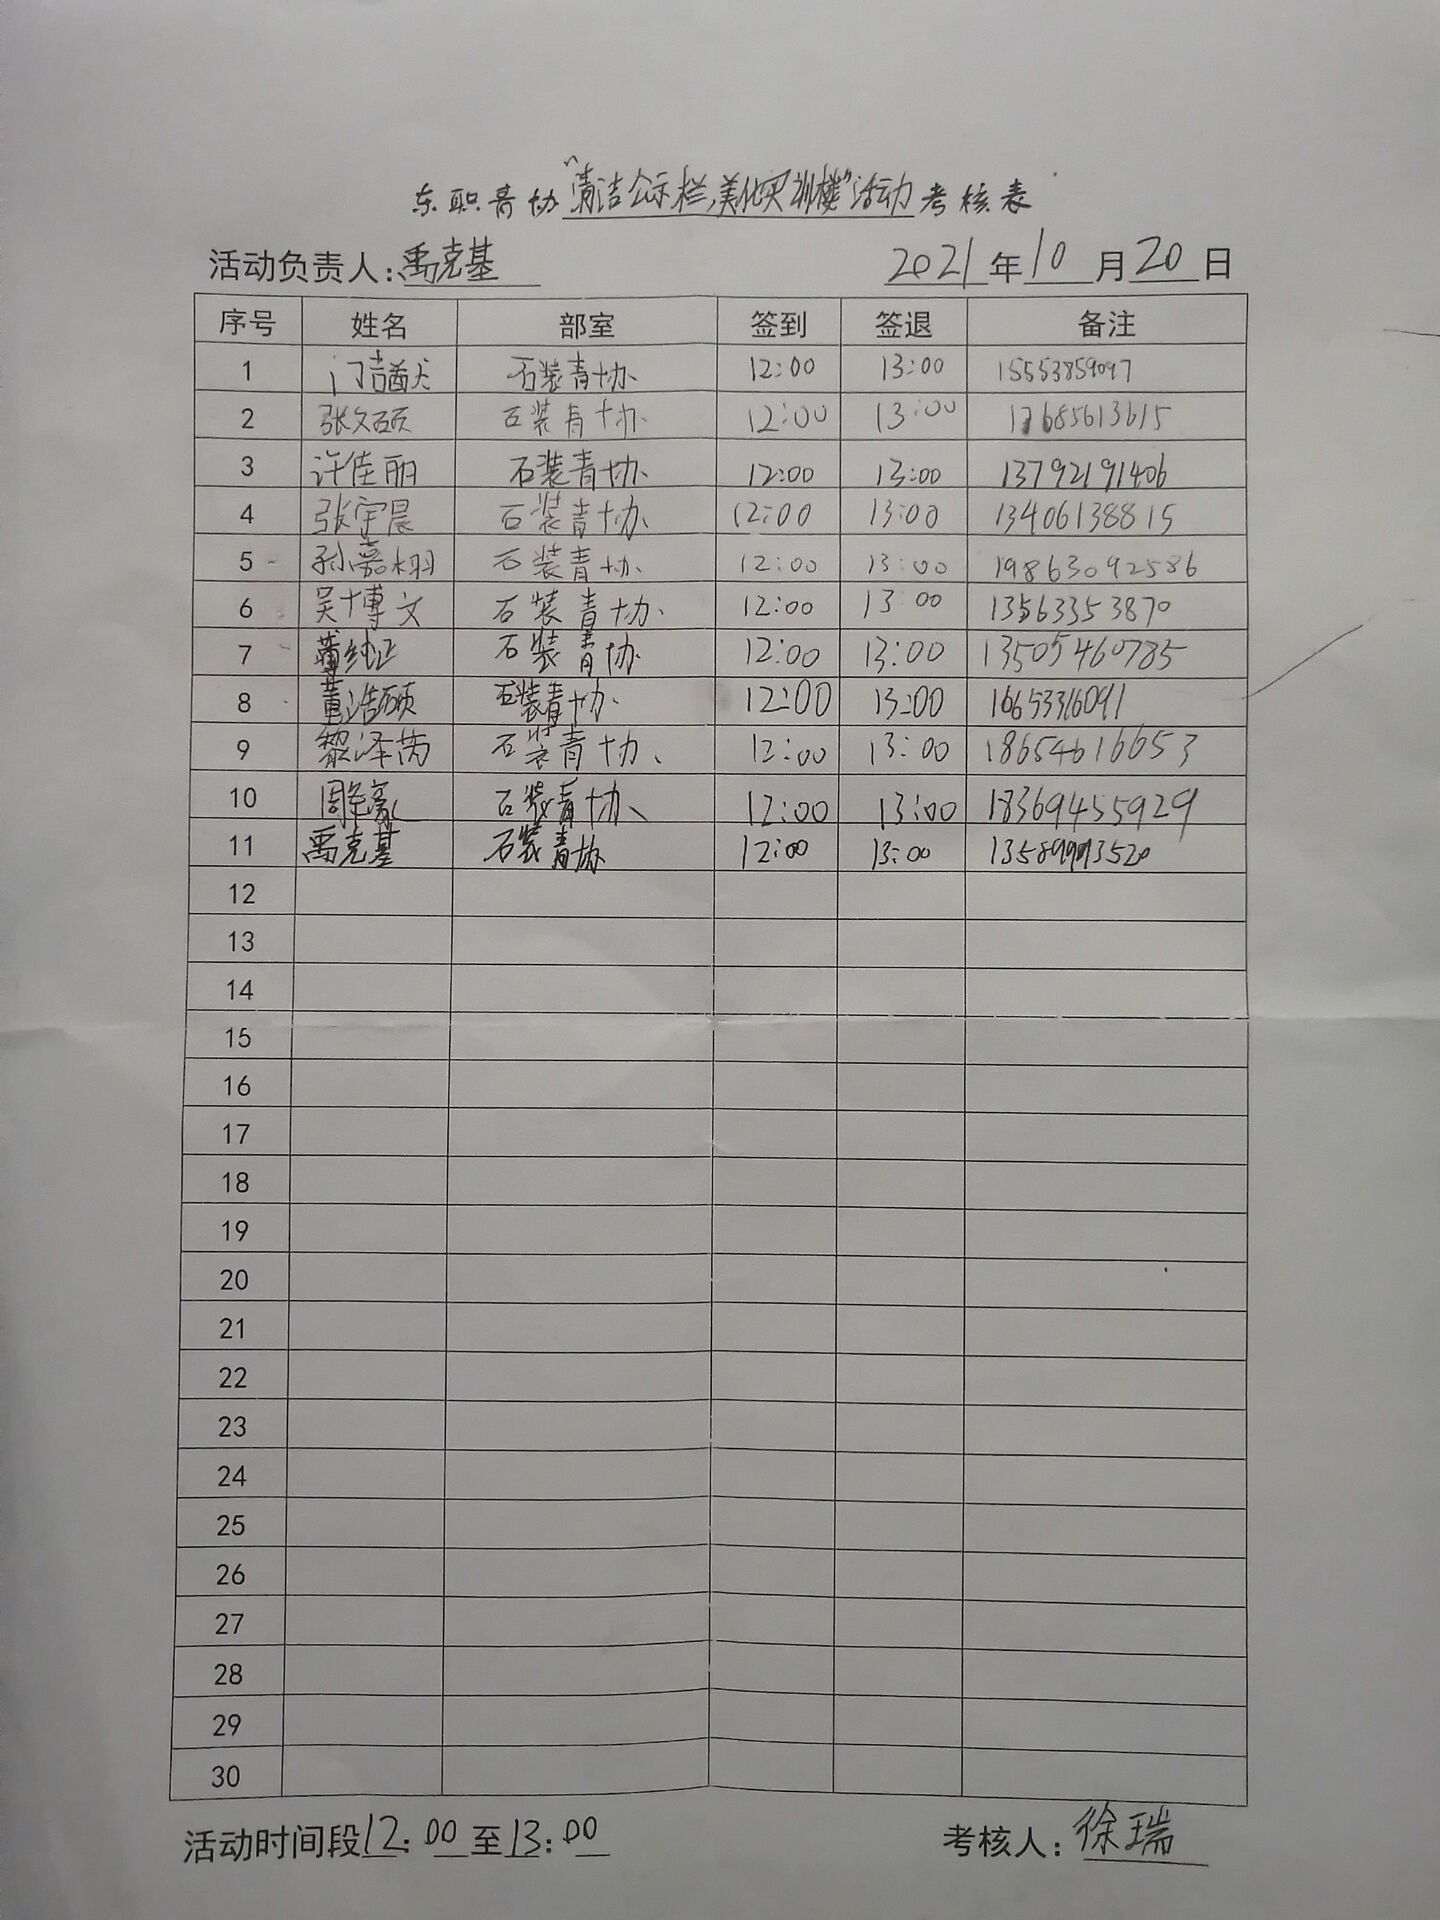 东职青协“清洁公示栏,美化实训楼”活动考核表
活动负责人:禹克基 2021年10月20日
序号 姓名 部室 签到 签退 备注
1 石装青协 12:00 13:00 15553859097
2 张文硕 石装青协 12:00 13:00 17685613615
3 许佳丽 石装青协 12:00 13:00 13792191406
4 张宇晨 石装青协 12:00 13:00 13406138815
5 孙嘉栩 石装青协 12:00 13:00 19863092586
6 吴博文 石装青协 12:00 13:00 13563353870
7 蒲纯正 石装青协 12:00 13:00 13505460785
8 董浩硕 石装青协 12:00 13:00
9 黎泽芮 石装青协、 12:00 13:00 18654616653
10 石装青协、 12:00 13:00 18369455929
11 禹克基 石装青协 12:00 13:00
12
13
14
15
16
17
18
19
20
21
22
23
24
25
26
27
28
29
30
活动时间段12:00至13:00 考核人:徐瑞